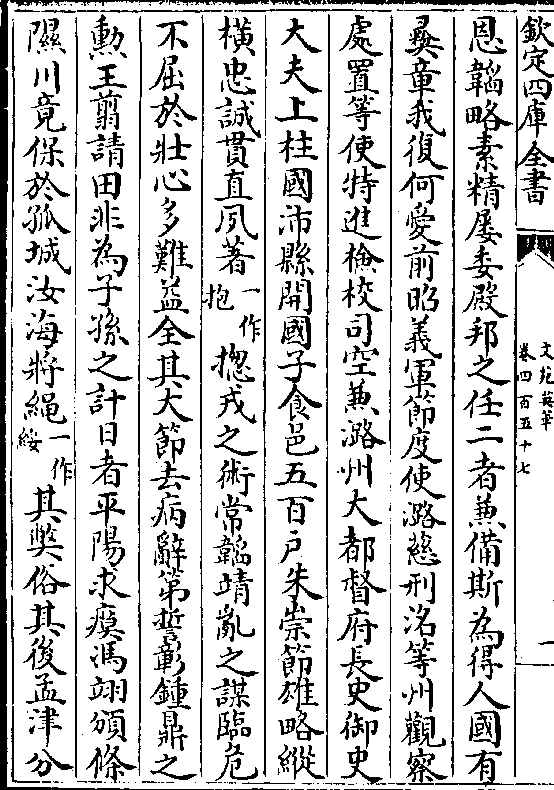 欽定四庫全書
文苑英華
卷四百五十七
一
恩韜略素精屢委殿邦之任二者兼備斯為得人國有
彞章我復何愛前昭義軍節度使潞慈刑洺等州觀察
處置等使特進檢校司空兼潞州大都督府長史御史
大夫上柱國沛縣開國子食邑五百戶朱崇節雄略縱
橫忠誠貫直夙著一作抱揔戎之術常韜靖亂之謀臨危
不屈於壯心多難益全其大節去病辭第誓彰鍾鼎之
勲王翦請田非為子孫之計日者平陽求瘼馮翊頒條
隰川竟保於孤城汝海將繩一作綏其獘俗其後孟津分